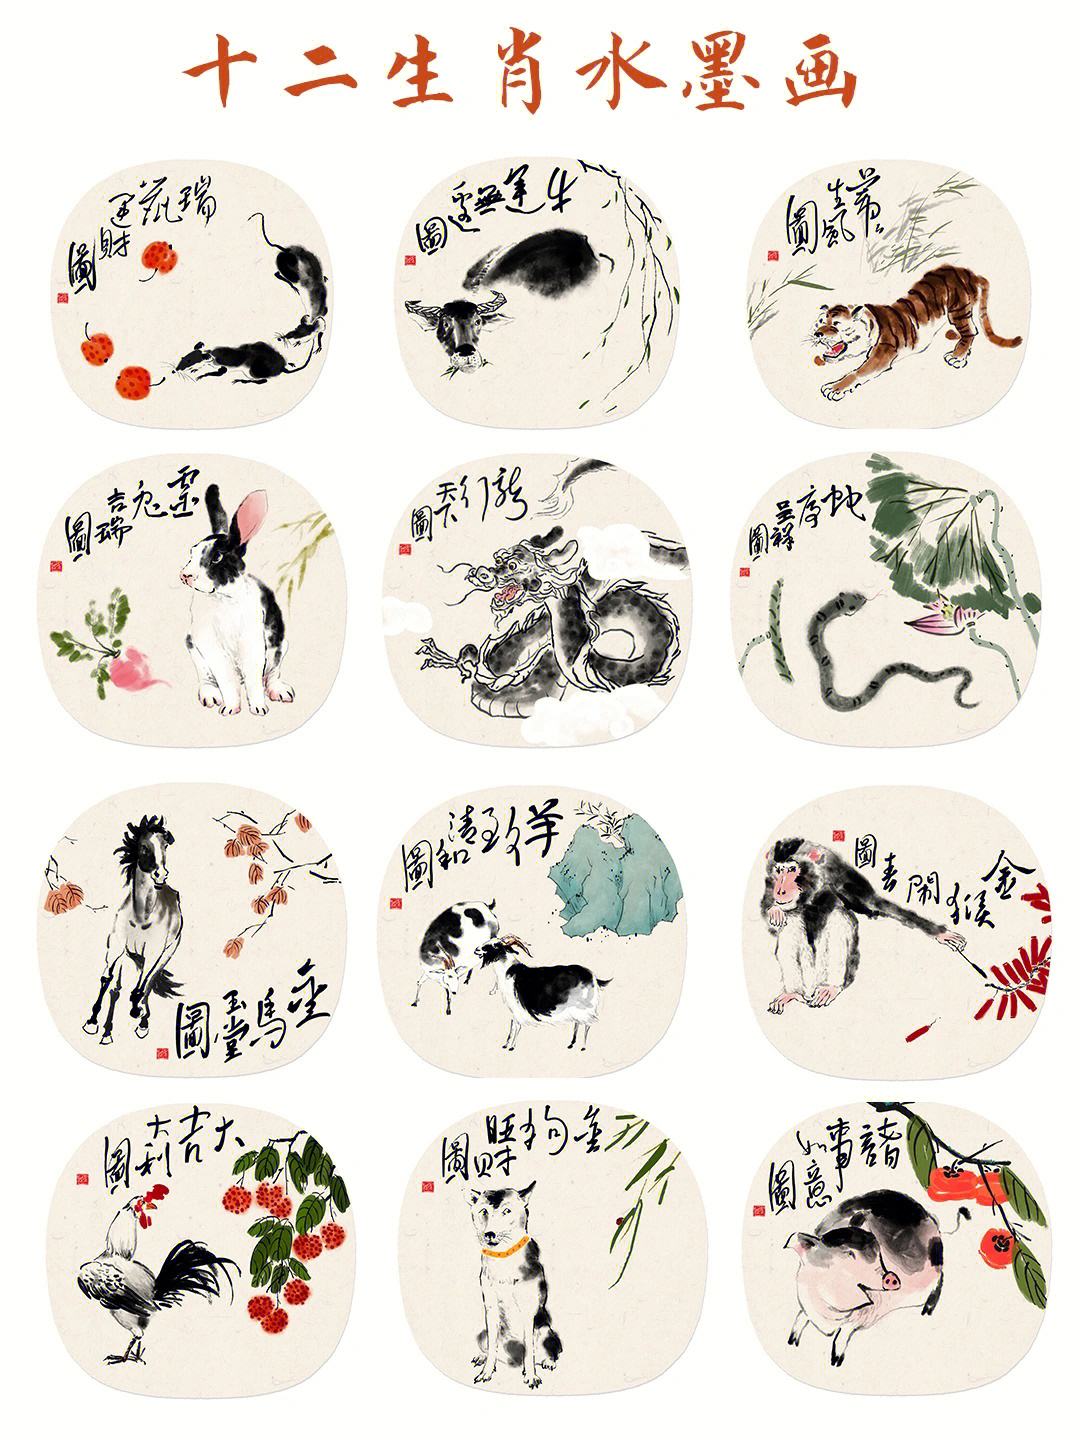 十二生肖水墨画
瑞鼠運財圖
牛運無邊圖
虎々生風圖
靈兔吉瑞圖
龍行天下圖
呈祥圖
金馬玉堂圖
羊致清和圖
金猴鬧春圖
大吉大利圖
金狗旺財圖
諸事如意圖